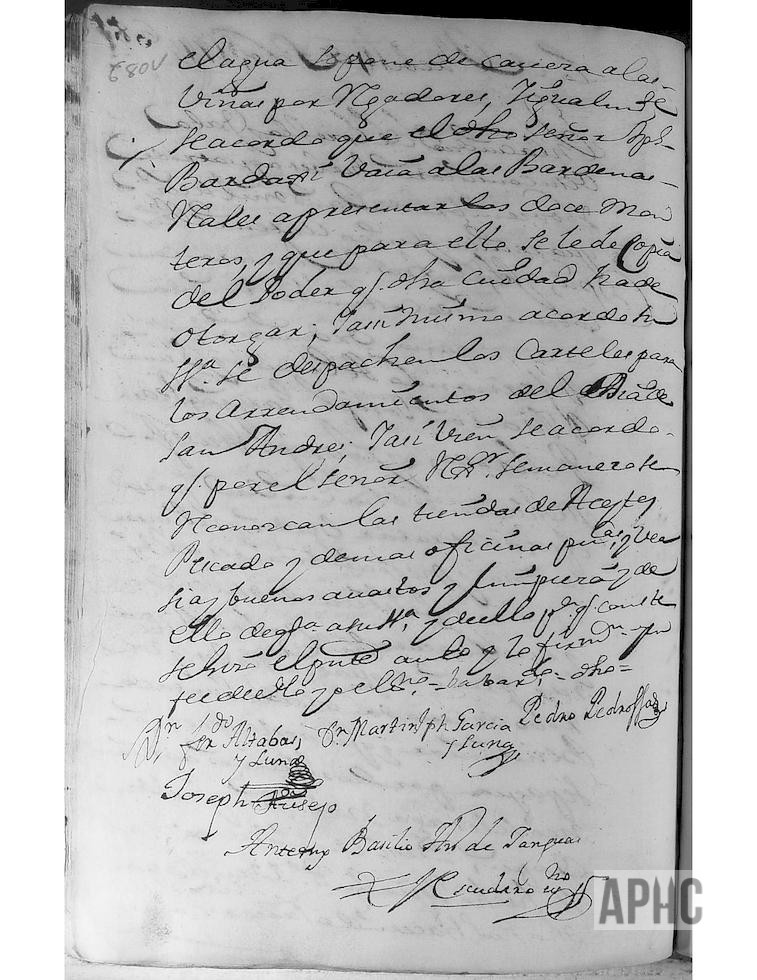 680V
el agua se pone de Caviera a las
Viñas por Rgadores, Igualmte
se acordo que el dho señor Jph
Bardaxi Vaia a las Bardenas
Rales a presentar los doce Mon
teros, y que para ello se le de Copia
del Poder q. dha Ciudad ha de
otorgar; Iasi mismo acordo
Sª. se despachen los Carteles para
los Arrendamientos del de
San Andres; Iasi Vien se acordo
q. por el señor Rxr. semanero se
Reconozcan las tiendas de Aceyte
Pescado y demas oficinas pucas, y vea
si ay buenos avastos y limpieza y de
ello de qta. a su Sª. y de ello pª. q. conste
se hizo el pnte auto y lo firmn. yn
fee de ello yo el no.
Dn Altabas,
y Luna
Dn. Martin Jph. Garcia
y Luna
Pedro Pedrossa
Joseph Ausejo
Antemy Basilio de Tanguas
y Escudero
APHC